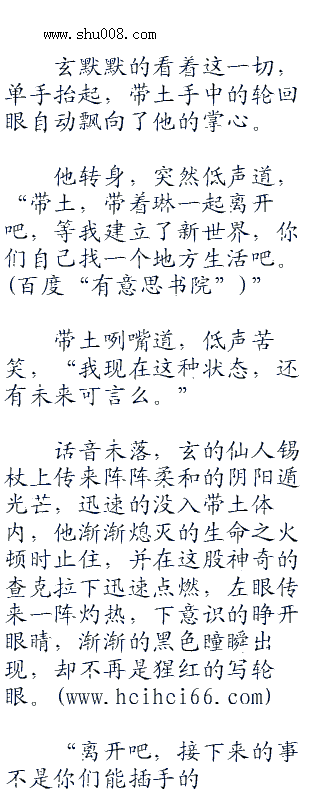 www.shu008.com
玄默默的看着这一切，
单手抬起，带土手中的轮回
眼自动飘向了他的掌心。
他转身，突然低声道，
“带土，带着琳一起离开
吧，等我建立了新世界，你
们自己找一个地方生活吧。
(百度“有意思书院”)”
带土咧嘴道，低声苦
笑，“我现在这种状态，还
有未来可言么。”
话音未落，玄的仙人锡
杖上传来阵阵柔和的阴阳遁
光芒，迅速的没入带土体
内，他渐渐熄灭的生命之火
顿时止住，并在这股神奇的
查克拉下迅速点燃，左眼传
来一阵灼热，下意识的睁开
眼睛，渐渐的黑色瞳瞬出
现，却不再是猩红的写轮
眼。(www.hcihci66.com)
“离开吧，接下来的事
不是你们能插手的